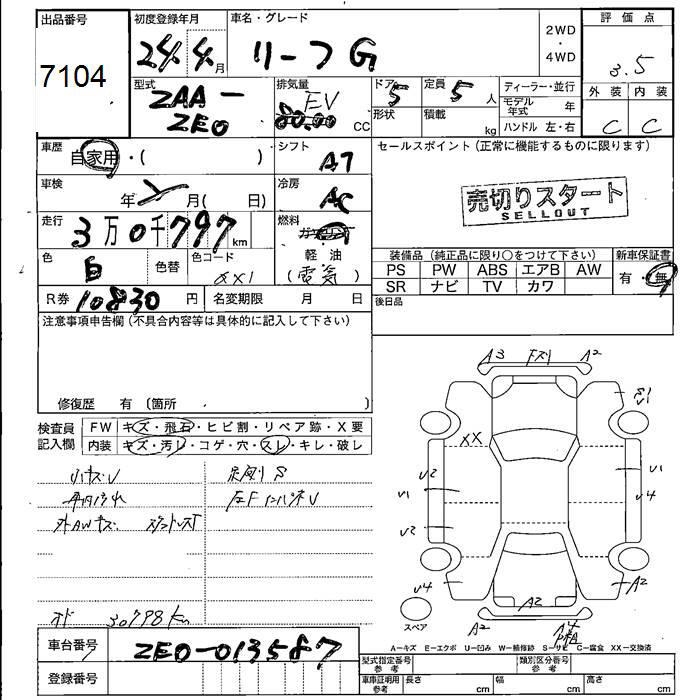 出品番号 初度登録年月 車名・グレード 評価点
7104 24年4月 リーフG 2WD・4WD 3.5
型式 排気量 ドア 5 定員 5人 ディーラー・並行 外装 内装
ZAA-ZE0 EV cc 形状 積載 kg モデル年式 年 C C
ハンドル 左・右
車歴 自家用・( ) シフト AT セールスポイント (正常に機能するものに限ります)
車検 年 月( 日) 冷房 AC
売切りスタート
SELLOUT
走行 3万0千797km 燃料
軽・油
(電気)
色 白 色替 色コード 装備品 (純正品に限り○をつけて下さい) 新車保証書
PS PW ABS エアB AW 有・無
SR ナビ TV カワ
R券 10830円 名変期限 月 日 後日品
注意事項申告欄 (不具合内容等は具体的に記入して下さい)
修復歴 有 (箇所 )
検査員 FW キズ・飛石・ヒビ割・リペア跡・X要
記入欄 内装 キズ・汚レ・コゲ・穴・スレ・キレ・破レ
小キズU
外AWキズ
30798km
A3 A2
S1
U1
XX
U2 U1
U1 U4
U2
U4 A2
A2 A2 A4
スペア
A-キズ E-エクボ U-凹み W-補修跡 S-サビ C-腐食 XX-交換済
車台番号 ZE0-013587
登録番号
型式指定番号 参考 類別区分番号 参考
車庫証明用 参考 長さ cm 幅 cm 高さ cm